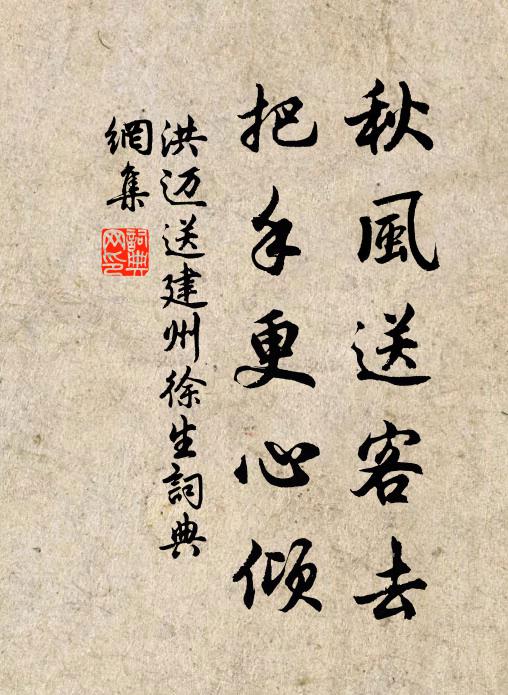 秋風送客去
把手更心傾
洪迈送建州徐生詞典
網集
詞典网印